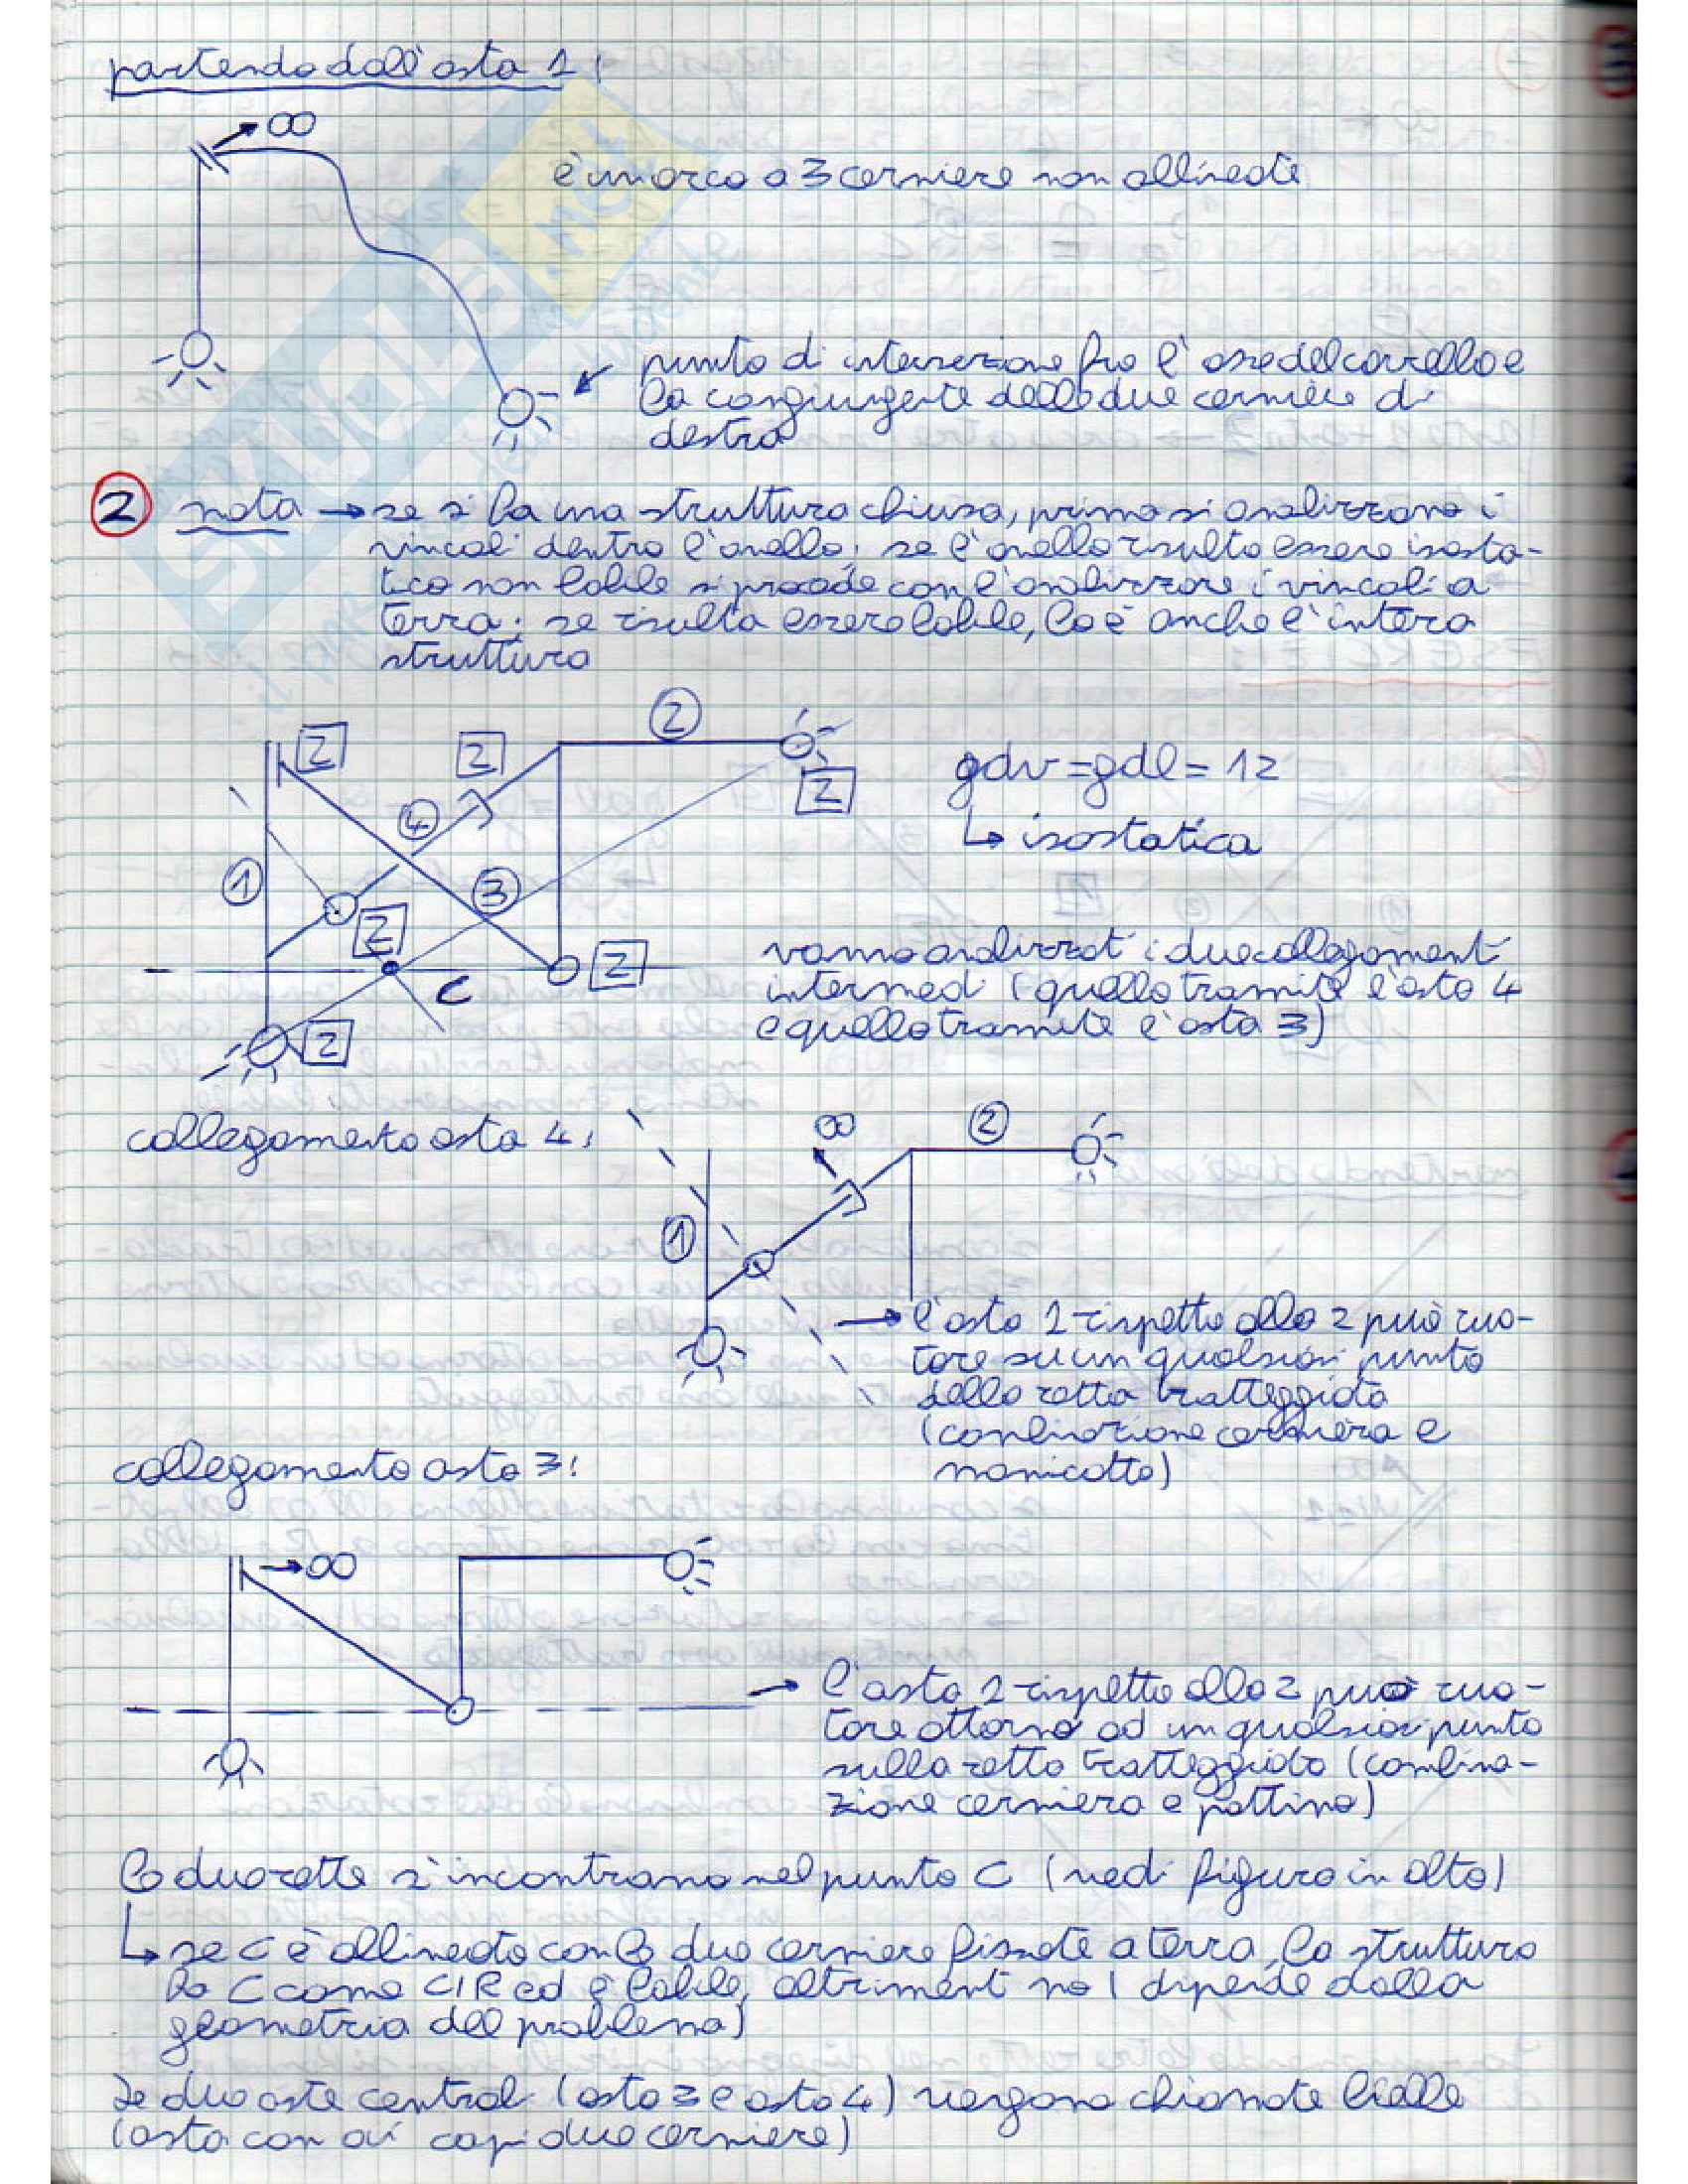 partendo dall'asta 1:
∞
è un arco a 3 cerniere non allineate
punto di intersezione fra l'asse del carrello e
la congiungente delle due cerniere di
destra
2 nota → se si ha una struttura chiusa, prima si analizzano i
vincoli dentro l'anello; se l'anello risulta essere isosta-
tico non labile si procede con l'analizzare i vincoli a
terra; se risulta essere labile, lo è anche l'intera
struttura
2
2
2
2
gdv = gdl = 12
↳ isostatica
4
1
3
2
C
2
2
vanno analizzati i due collegamenti
intermedi (quello tramite l'asta 4
e quello tramite l'asta 3)
collegamento asta 4:
∞
2
1
→ l'asta 1 rispetto alla 2 può ruo-
tare su un qualsiasi punto
della retta tratteggiata
(combinazione cerniera e
manicotto)
collegamento asta 3:
→∞
→ l'asta 1 rispetto alla 2 può ruo-
tare attorno ad un qualsiasi punto
sulla retta tratteggiata (combina-
zione cerniera e pattino)
le due rette s'incontrano nel punto C (vedi figura in alto)
↳ se C è allineato con le due cerniere fissate a terra, la struttura
ha C come CIR ed è labile, altrimenti no (dipende dalla
geometria del problema)
Le due aste centrali (asta 3 e asta 4) vengono chiamate bielle
(asta con ai capi due cerniere)
SKUOLA.net